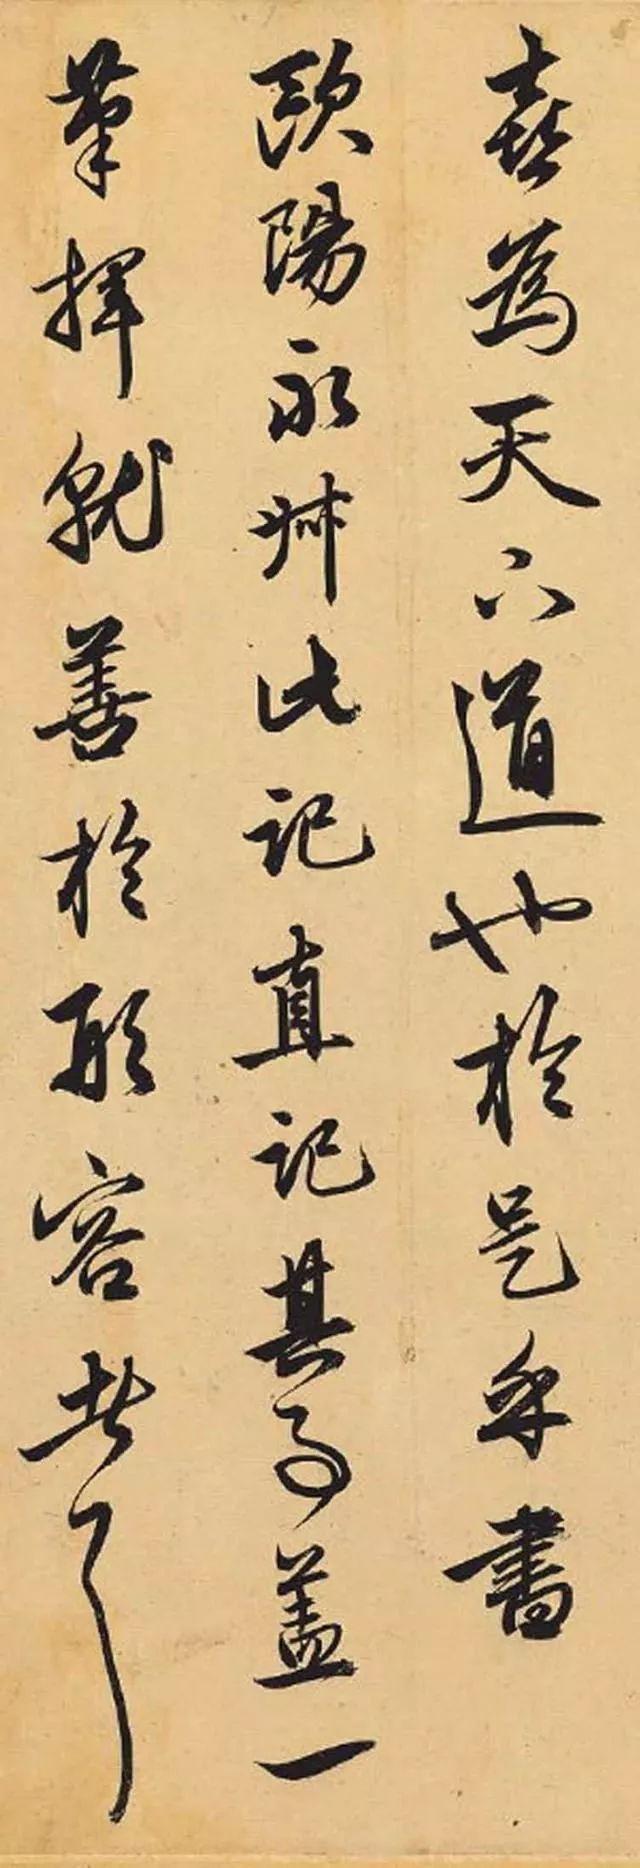 喜為天下道也於是乎書
歐陽永叔此記直記其事盖一
筆揮就善於形容者耳